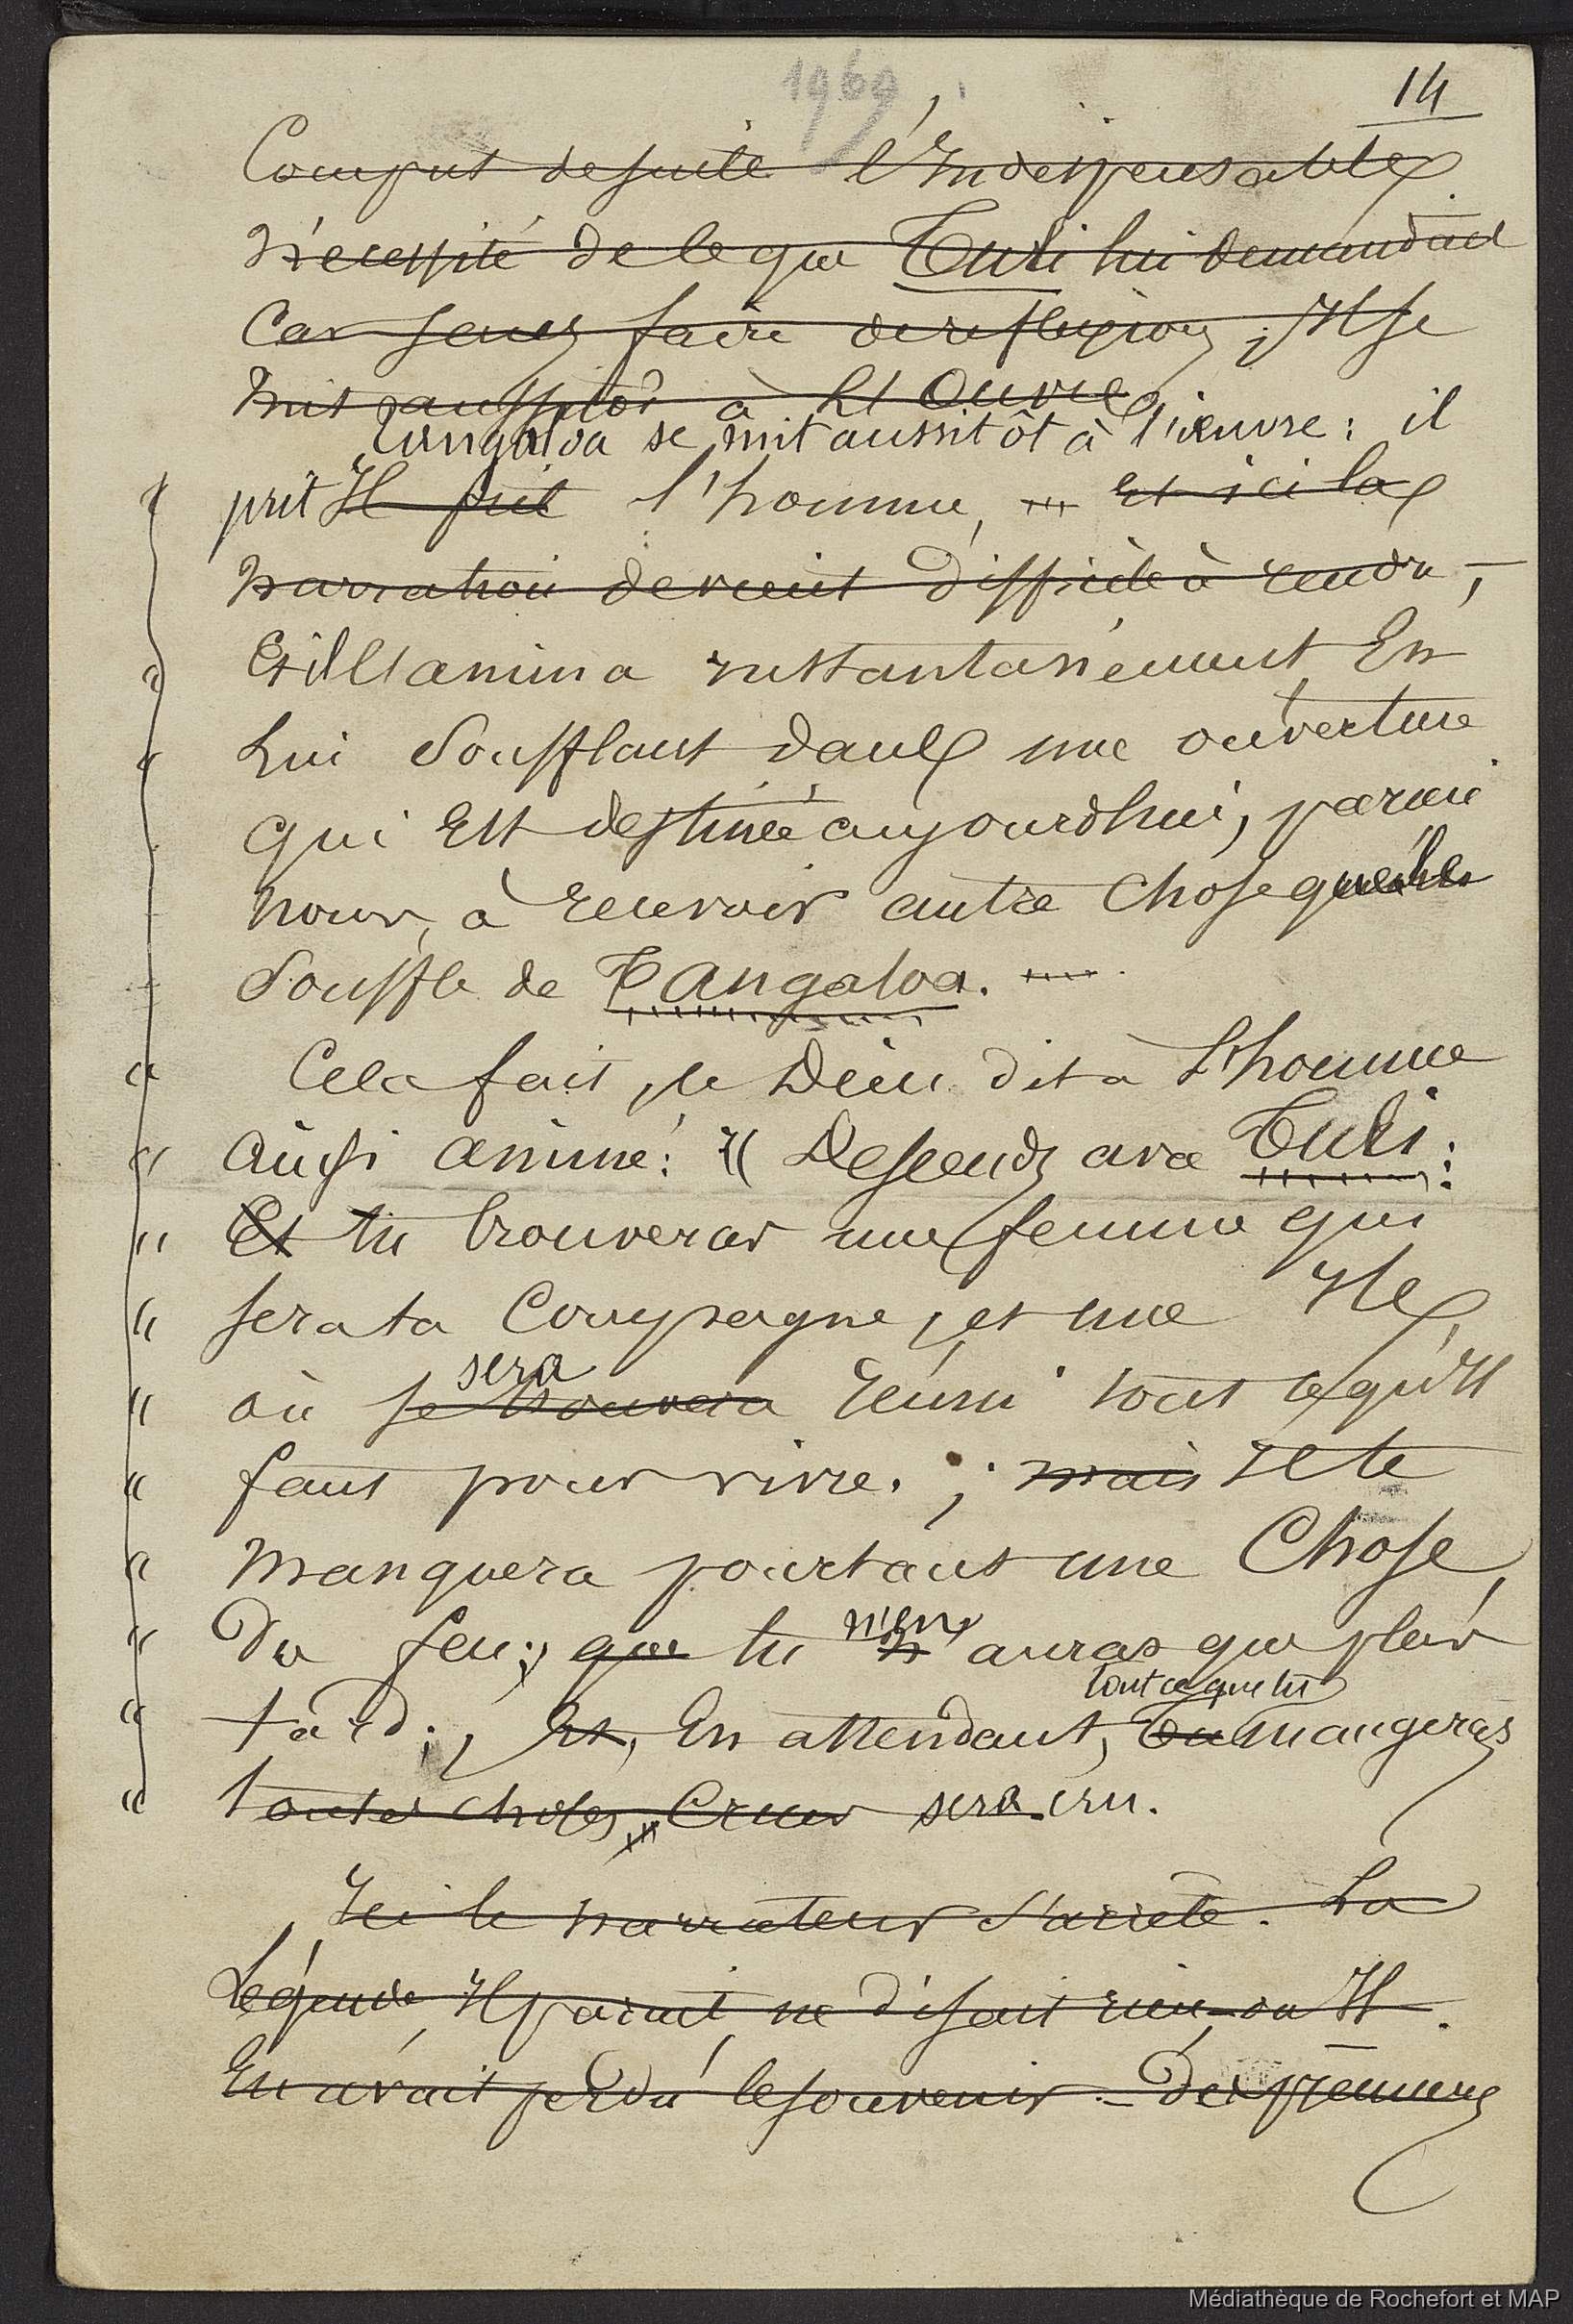 1969
14
Comput desuite l'Indespensable
Nécessité de ce que Tuli lui demandait
Car sans faire de reflexion, Il se
mit aussitôt à L'Ouvre
Tangaloa se mit aussitôt à l'œuvre : il
prit Il prit l'homme, et ici la
Narration devient difficile à rendre,
Et il l'anima instantanément En
Lui Soufflant dans une ouverture
qui Est destinée aujourdhui, parmi
nous, à recevoir autre chose que le
Souffle de Tangaloa.
" Cela fait, le Dieu dit à L'homme
" Ainsi animé : " Descends avec Tuli :
" Et tu trouveras une femme qui
" sera ta Compagne, et une Ile,
sera
" où se trouvera réuni tout ce qu'Il
" faut pour vivre. ; mais Il te
" Manquera pourtant une Chose,
n'en
" Du feu ; que tu n' auras que plus
tout ce que tu
" tard ; Et, En attendant, Tu mangeras
" toutes choses Crues sera cru.
Ici le narrateur s'arrête. La
Légende, Il parait, ne disait rien, ou Il
En avait perdu le souvenir – Des premiers
Médiathèque de Rochefort et MAP